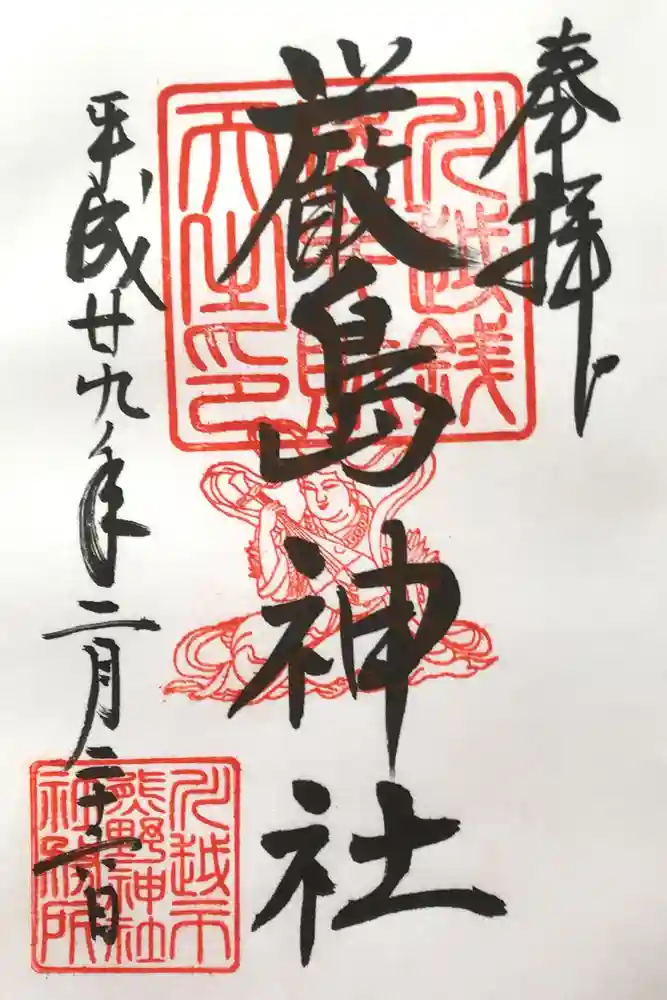 奉拝
川越銭
天之印
厳島神社
平成廿九年二月二十六日
川越市
熊野神社
社務所